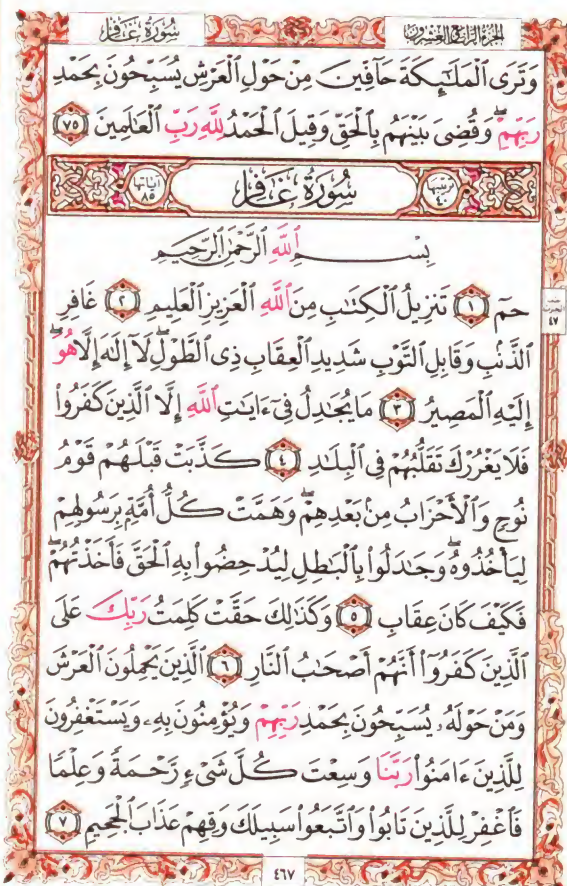 الجزء الرابع والعشرون
سُورَةُ غَافِر
وَتَرَى ٱلْمَلَـٰٓئِكَةَ حَآفِّينَ مِنْ حَوْلِ ٱلْعَرْشِ يُسَبِّحُونَ بِحَمْدِ
رَبِّهِمْ ۖ وَقُضِىَ بَيْنَهُم بِٱلْحَقِّ وَقِيلَ ٱلْحَمْدُ لِلَّهِ رَبِّ ٱلْعَـٰلَمِينَ ٧٥
ترتيبها ٤٠ سُورَةُ غَافِر آياتها ٨٥
بِسْمِ ٱللَّهِ ٱلرَّحْمَـٰنِ ٱلرَّحِيمِ
حمٓ ١ تَنزِيلُ ٱلْكِتَـٰبِ مِنَ ٱللَّهِ ٱلْعَزِيزِ ٱلْعَلِيمِ ٢ غَافِرِ
ٱلذَّنۢبِ وَقَابِلِ ٱلتَّوْبِ شَدِيدِ ٱلْعِقَابِ ذِى ٱلطَّوْلِ ۖ لَآ إِلَـٰهَ إِلَّا هُوَ ۖ
إِلَيْهِ ٱلْمَصِيرُ ٣ مَا يُجَـٰدِلُ فِىٓ ءَايَـٰتِ ٱللَّهِ إِلَّا ٱلَّذِينَ كَفَرُوا۟
فَلَا يَغْرُرْكَ تَقَلُّبُهُمْ فِى ٱلْبِلَـٰدِ ٤ كَذَّبَتْ قَبْلَهُمْ قَوْمُ
نُوحٍ وَٱلْأَحْزَابُ مِنۢ بَعْدِهِمْ ۖ وَهَمَّتْ كُلُّ أُمَّةٍۭ بِرَسُولِهِمْ
لِيَأْخُذُوهُ ۖ وَجَـٰدَلُوا۟ بِٱلْبَـٰطِلِ لِيُدْحِضُوا۟ بِهِ ٱلْحَقَّ فَأَخَذْتُهُمْ ۖ
فَكَيْفَ كَانَ عِقَابِ ٥ وَكَذَٰلِكَ حَقَّتْ كَلِمَتُ رَبِّكَ عَلَى
ٱلَّذِينَ كَفَرُوٓا۟ أَنَّهُمْ أَصْحَـٰبُ ٱلنَّارِ ٦ ٱلَّذِينَ يَحْمِلُونَ ٱلْعَرْشَ
وَمَنْ حَوْلَهُۥ يُسَبِّحُونَ بِحَمْدِ رَبِّهِمْ وَيُؤْمِنُونَ بِهِۦ وَيَسْتَغْفِرُونَ
لِلَّذِينَ ءَامَنُوا۟ رَبَّنَا وَسِعْتَ كُلَّ شَىْءٍ رَّحْمَةً وَعِلْمًا
فَٱغْفِرْ لِلَّذِينَ تَابُوا۟ وَٱتَّبَعُوا۟ سَبِيلَكَ وَقِهِمْ عَذَابَ ٱلْجَحِيمِ ٧
الحزب ٤٧
٤٦٧